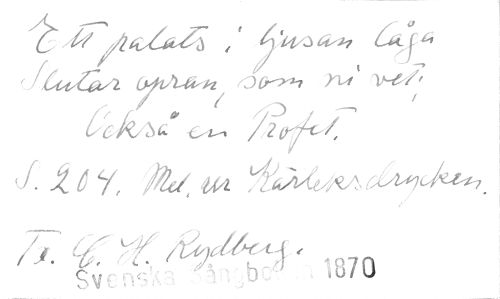 Ett palats i ljusan låga
Slutar opran, som ni vet;
Också en Profet.
S. 204. Mel. ur Kärleksdrycken.
Tr. C. H. Rydberg.
Svenska Sångboken 1870